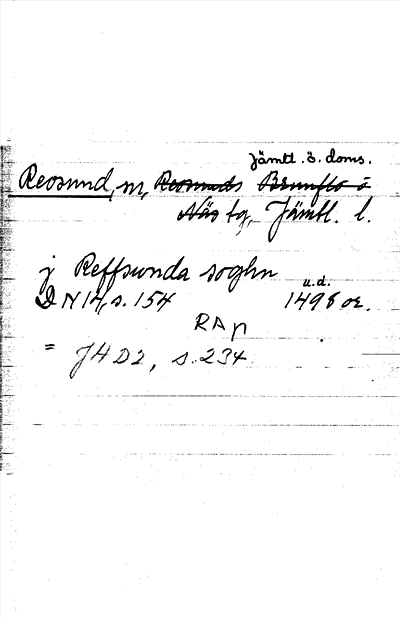 Jämtl. ö. doms.
Revsund, sn, Revsunds Brunflo o
Näs tg, Jämtl. l.
j Reffswnda soghn
u.d.
DN 14, s. 154 1498 or.
RAp
= JHD2, s. 234